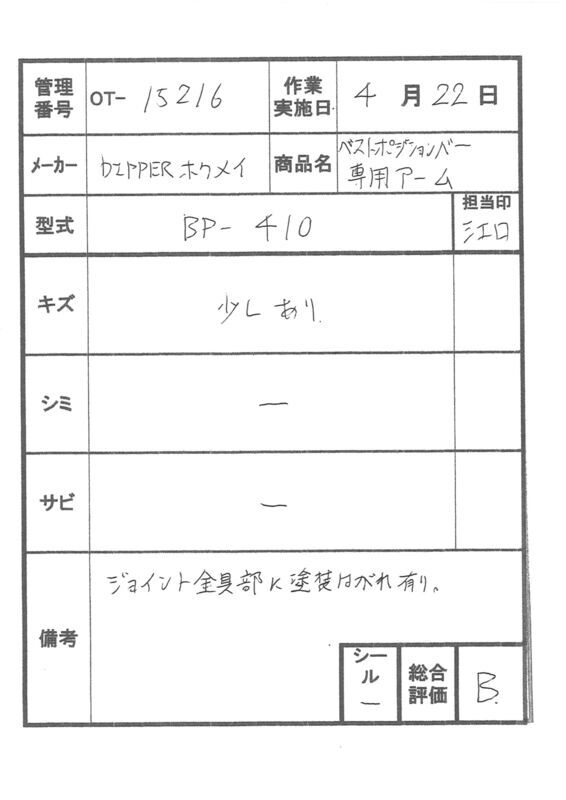 管理番号 OT- 15216 作業実施日 4月22日
メーカー ウエッPPERホクメイ 商品名 ベストポジションバー
専用アーム
型式 BP-410 担当印
江口
キズ 少しあり.
シミ ー
サビ ー
備考 ジョイント金具部に塗装はがれ有り。
シール ー 総合評価 B.